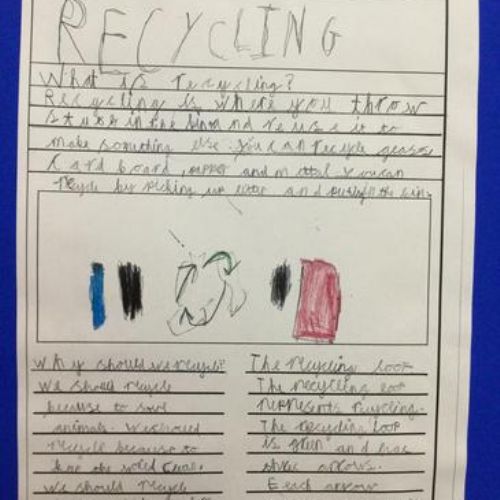 RECYCLING
What is recycling?
Recycling is where you throw
in the and reuse it to
make something else. you can recycle
card board, and you can
recycle by picking up and the bin.
Why should we recycle?
We should recycle
because to save
animals. We should
recycle because to
the world
We should recycle
The recycling loop
The recycling loop
represents recycling.
The recycling loop
is green and has
three arrows.
Each arrow